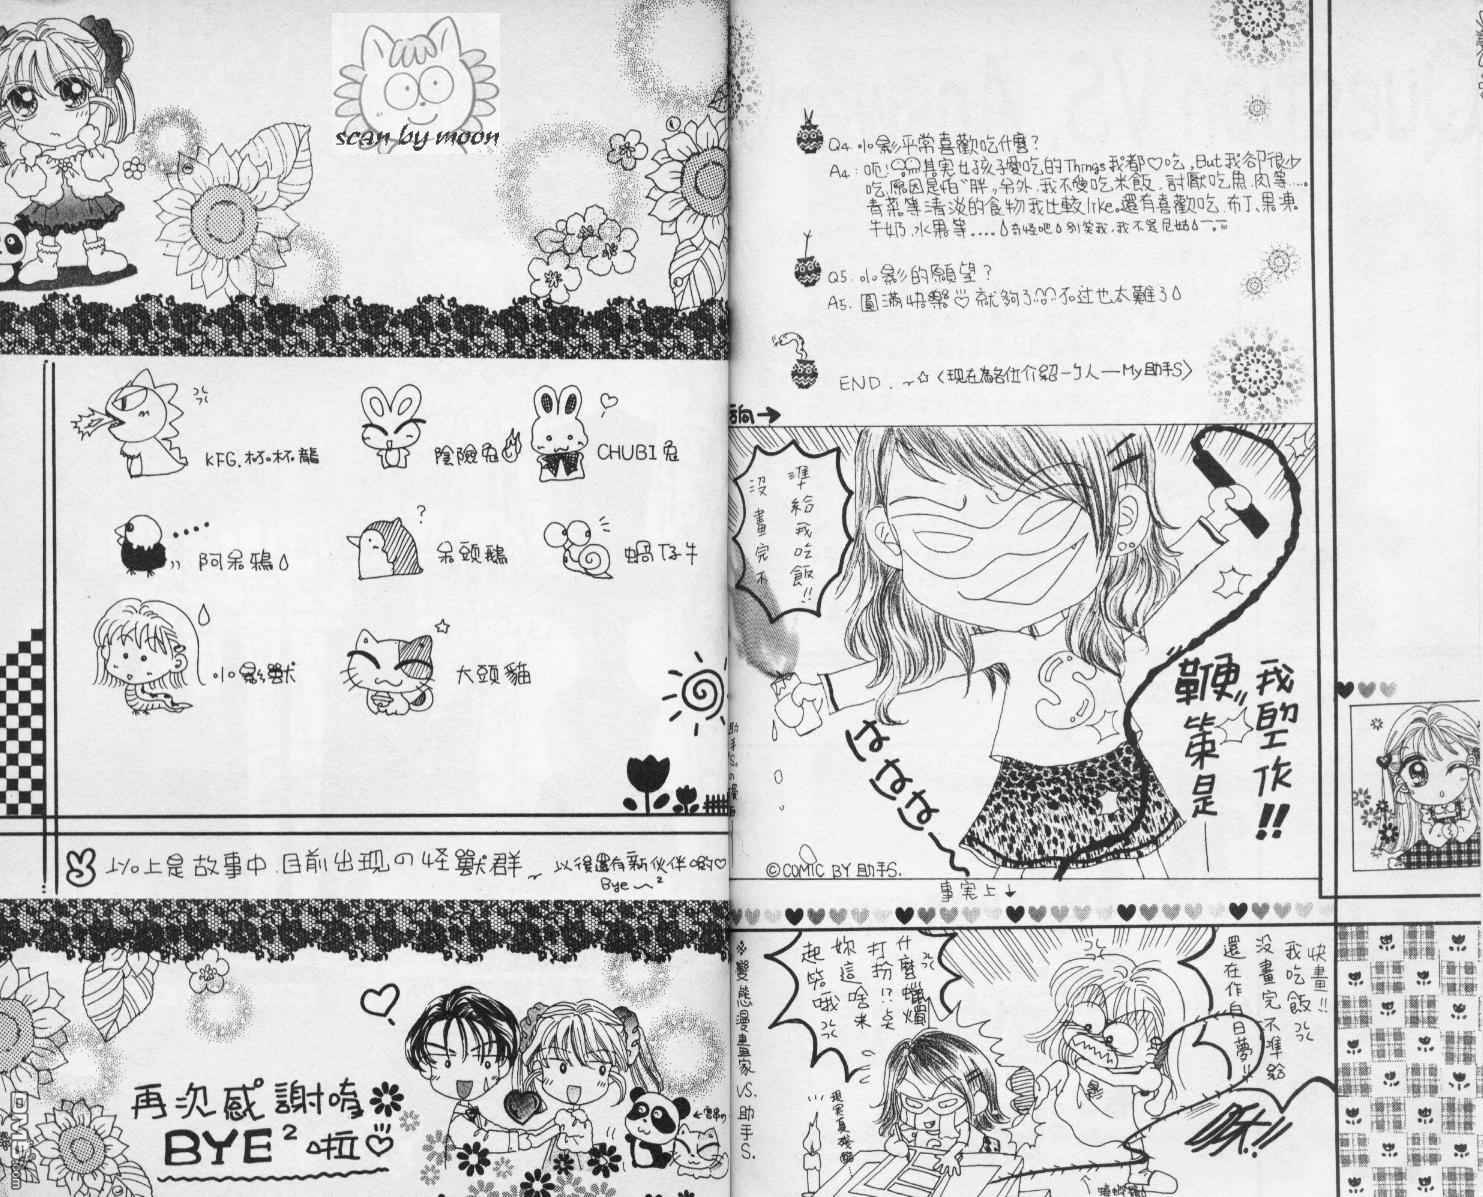 scan by moon
KFG.杯杯龍
陰險兔
CHUBI兔
阿呆鴉
呆頭鵝
蝸仔牛
小影獸
大頭貓
以上是故事中.目前出現の怪獸群~
以後還有新伙伴喲♡
Bye~²
再次感謝唷
BYE²啦
Q4.小影平常喜歡吃什麼?
A4.呃!其実女孩子愛吃的Things我都♡吃,But我卻很少
吃,原因是怕"胖",另外,我不愛吃米飯.討厭吃魚.肉等....。
青菜等清淡的食物我比較like。還有喜歡吃.布丁、果凍
牛奶.水果等....奇怪吧 別笑我,我不是尼姑
Q5.小影的願望?
A5.圓滿快樂♡就夠了 不过也太難了
END.~☆〈現在為各位介紹一个人──My助手S〉
沒畫完不
準給我吃飯!!
はははは~
我的工作!!
"鞭"策是──
©COMIC BY 助手S.
事実上↓
※變態漫畫家 VS. 助手S.
什麼蠟燭
打扮!?虧
妳這啥米
起笑哦
快畫!!
我吃飯
沒畫完不準給
還在作白日夢!!
呀!!